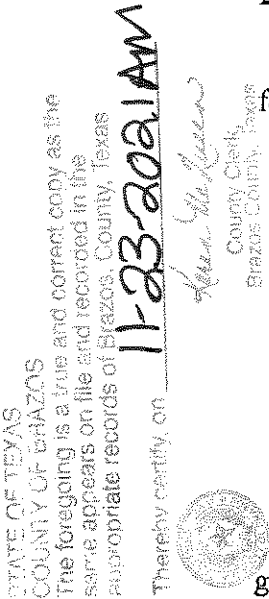 STATE OF TEXAS
COUNTY OF BRAZOS
The foregoing is a true and correct copy as the
same appears on file and recorded in the
appropriate records of Brazos, County, Texas
I hereby certify, on 11-23-2021 AM
Karen McQueen
County Clerk,
Brazos County, Texas
f
g